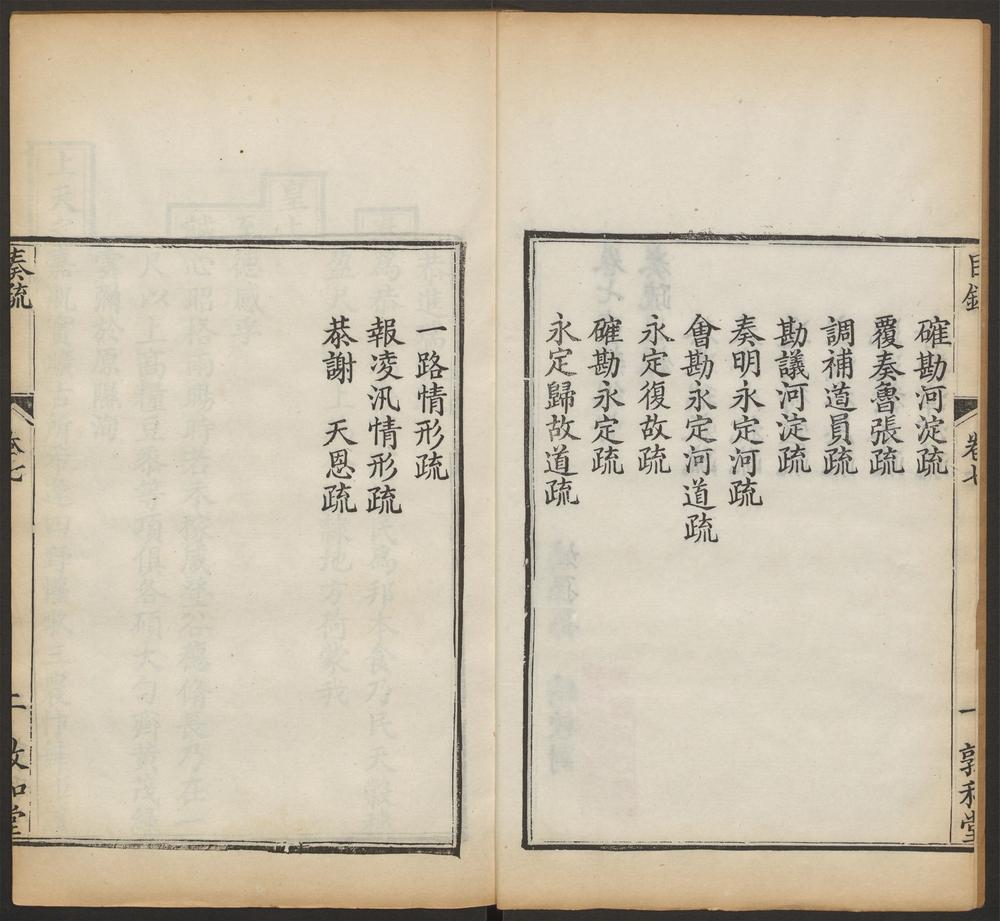 目錄 卷七 一 敦和堂
確勘河淀疏
覆奏魯張疏
調補道員疏
勘議河淀疏
奏明永定河疏
會勘永定河道疏
永定復故疏
確勘永定疏
永定歸故道疏
一路情形疏
報凌汛情形疏
恭謝 天恩疏
奏疏 卷七 二 敦和堂